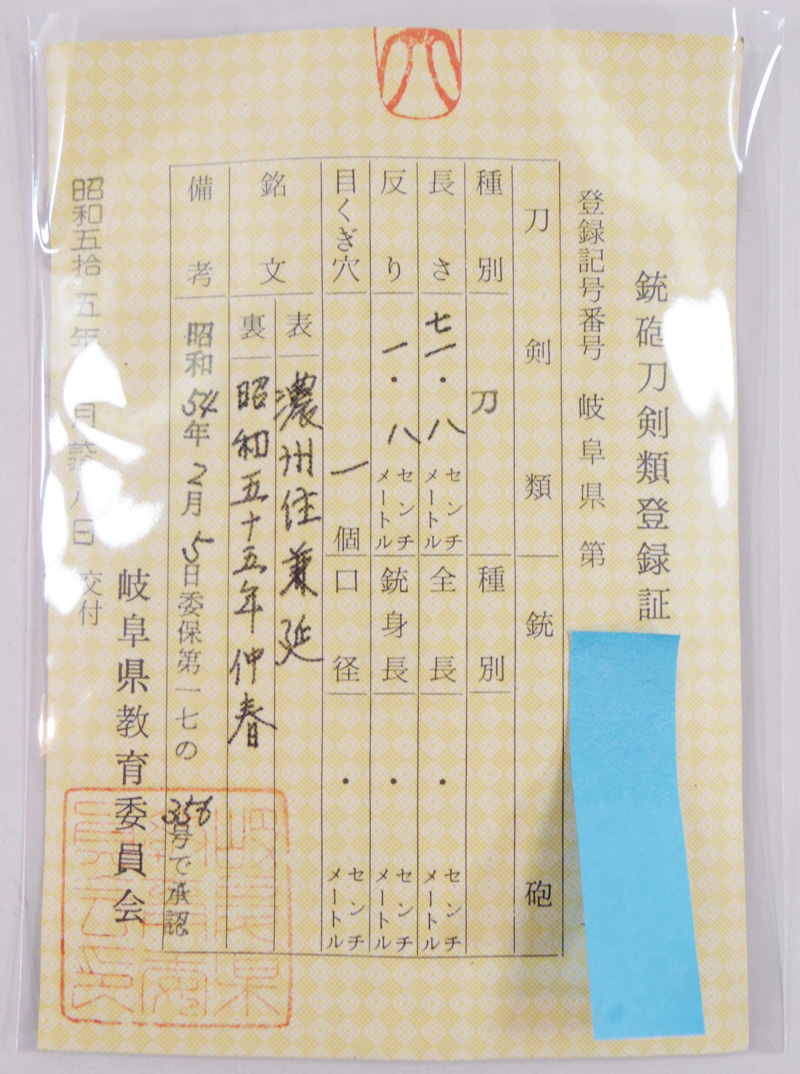 銃砲刀剣類登録証
登録記号番号 岐阜県 第
刀剣類 銃砲
種別 刀 種別
長さ 七一・八 センチメートル 全長 ・ センチメートル
反り 一・八 センチメートル 銃身長 ・ センチメートル
目くぎ穴 一個 口径 ・ センチメートル
銘文 表 濃州住兼延
裏 昭和五十五年仲春
備考 昭和54年2月5日委保第一七の356号で承認
岐阜県教育委員会
昭和五拾五年 月 八日 交付